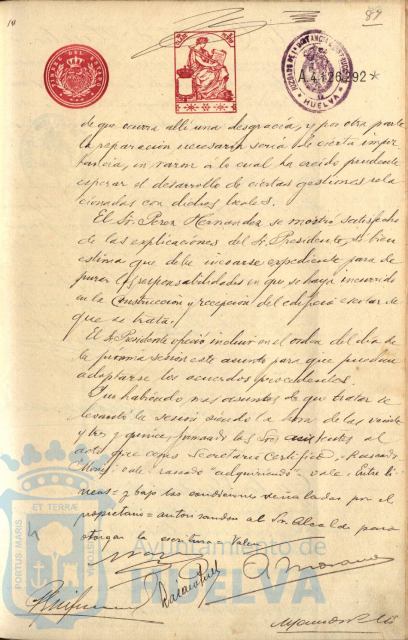 87
A.4126,292*
JUZGADO DE 1ª INSTANCIA E INSTRUCCION
HUELVA
de que ocurra allí una desgracia, y por otra parte
la reparación necesaria sería de cierta impor
tancia, en razón a lo cual ha creido prudente
esperar el desarrollo de ciertas gestiones rela
cionadas con dichos locales.
El Sr. Perez Hernandez se mostró satisfecho
de las explicaciones del Sr. Presidente, si bien
estima que debe incoarse expediente para de
purar las responsabilidades en que se haya incurrido
en la construccion y recepcion del edificio escolar de
que se trata.
El Sr. Presidente ofreció incluir en el orden del dia de
la próxima sesión este asunto para que puedan
adoptarse los acuerdos procedentes.
Y no habiendo mas asuntos de que tratar se
levantó la sesión siendo la hora de las veinte
y tres y quince, firmando los Sres. asistentes al
acto de que como Secretario Certifico.
vale = raspado "adquiriendo" vale = Entre lí
neas = y bajo las condiciones señaladas por el
propietario = autorizandose al Sr. Alcalde para
otorgar la escritura = Vale
Morano
PORTUS MARIS
ET TERRAE
CUSTODIA
Ayuntamiento de
HUELVA